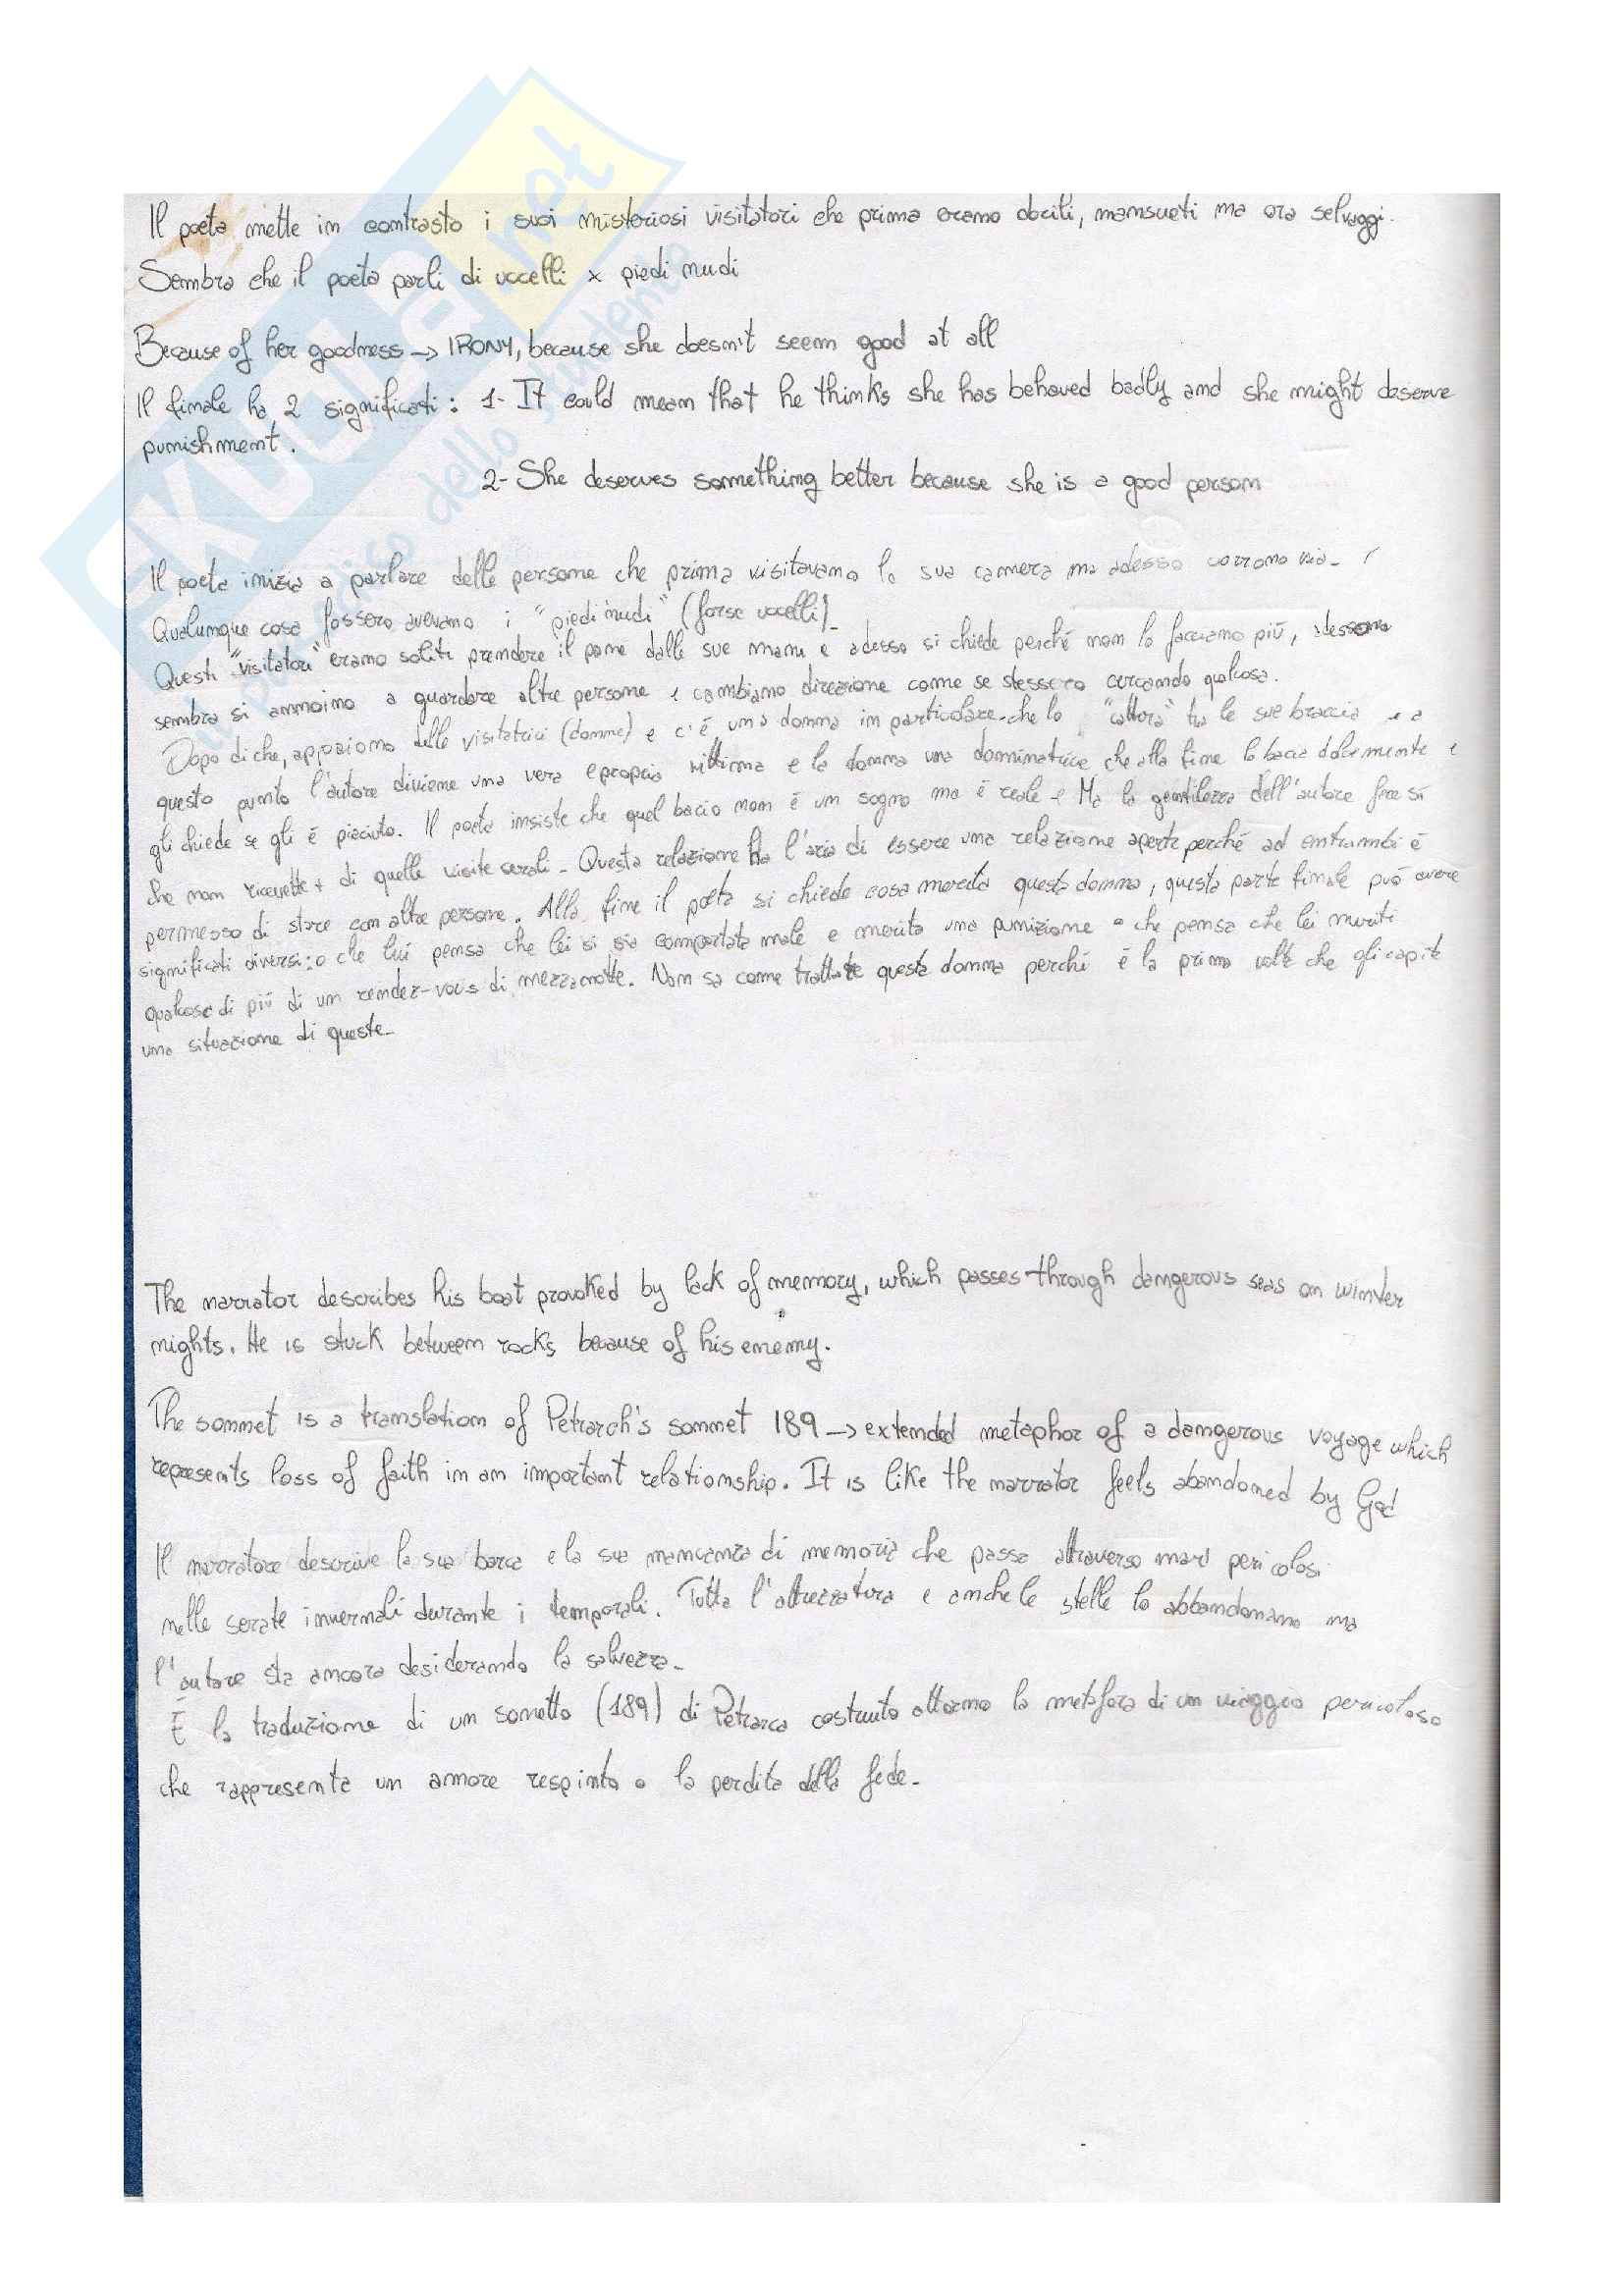 Il poeta mette in contrasto i suoi misteriosi visitatori che prima erano docili, mansueti ma ora selvaggi.
Sembra che il poeta parli di uccelli x piedi nudi
Because of her goodness → IRONY, because she doesn't seem good at all
Il finale ha 2 significati: 1- It could mean that he thinks she has behaved badly and she might deserve
punishment.
2- She deserves something better because she is a good person
Il poeta inizia a parlare delle persone che prima visitavano la sua camera ma adesso corrono via.
Qualunque cosa fossero avevano i "piedi nudi" (forse uccelli).
Questi "visitatori" erano soliti prendere il pane dalle sue mani e adesso si chiede perché non lo facciano più,
sembra si annoino a guardare altre persone e cambiano direzione come se stessero cercando qualcosa.
Dopo di che, appaiono delle visitatrici (donne) e c'è una donna in particolare che lo "cattura" tra le sue braccia e a
questo punto l'autore diviene una vera e propria vittima e la donna una dominatrice che alla fine lo bacia dolcemente e
gli chiede se gli è piaciuto. Il poeta insiste che quel bacio non è un sogno ma è reale. Ma la gentilezza dell'autore fece sì
che non ricevette + di quelle visite serali. Questa relazione ha l'aria di essere una relazione aperta perché ad entrambi è
permesso di stare con altre persone. Alla fine il poeta si chiede cosa merita questa donna, questa parte finale può avere
significati diversi: o che lui pensa che lei si sia comportata male e merita una punizione o che pensa che lei meriti
qualcosa di più di un rendez-vous di mezzanotte. Non sa come trattare questa donna perché è la prima volta che gli capita
una situazione di queste.
The narrator describes his boat provoked by lack of memory, which passes through dangerous seas on winter
nights. He is stuck between rocks because of his enemy.
The sonnet is a translation of Petrarch's sonnet 189 → extended metaphor of a dangerous voyage which
represents loss of faith in an important relationship. It is like the narrator feels abandoned by God
Il narratore descrive la sua barca e la sua mancanza di memoria che passa attraverso mari pericolosi
nelle serate invernali durante i temporali. Tutta l'attrezzatura e anche le stelle lo abbandonano ma
l'autore sta ancora desiderando la salvezza.
È la traduzione di un sonetto (189) di Petrarca costruito attorno la metafora di un viaggio pericoloso
che rappresenta un amore respinto o la perdita della fede.